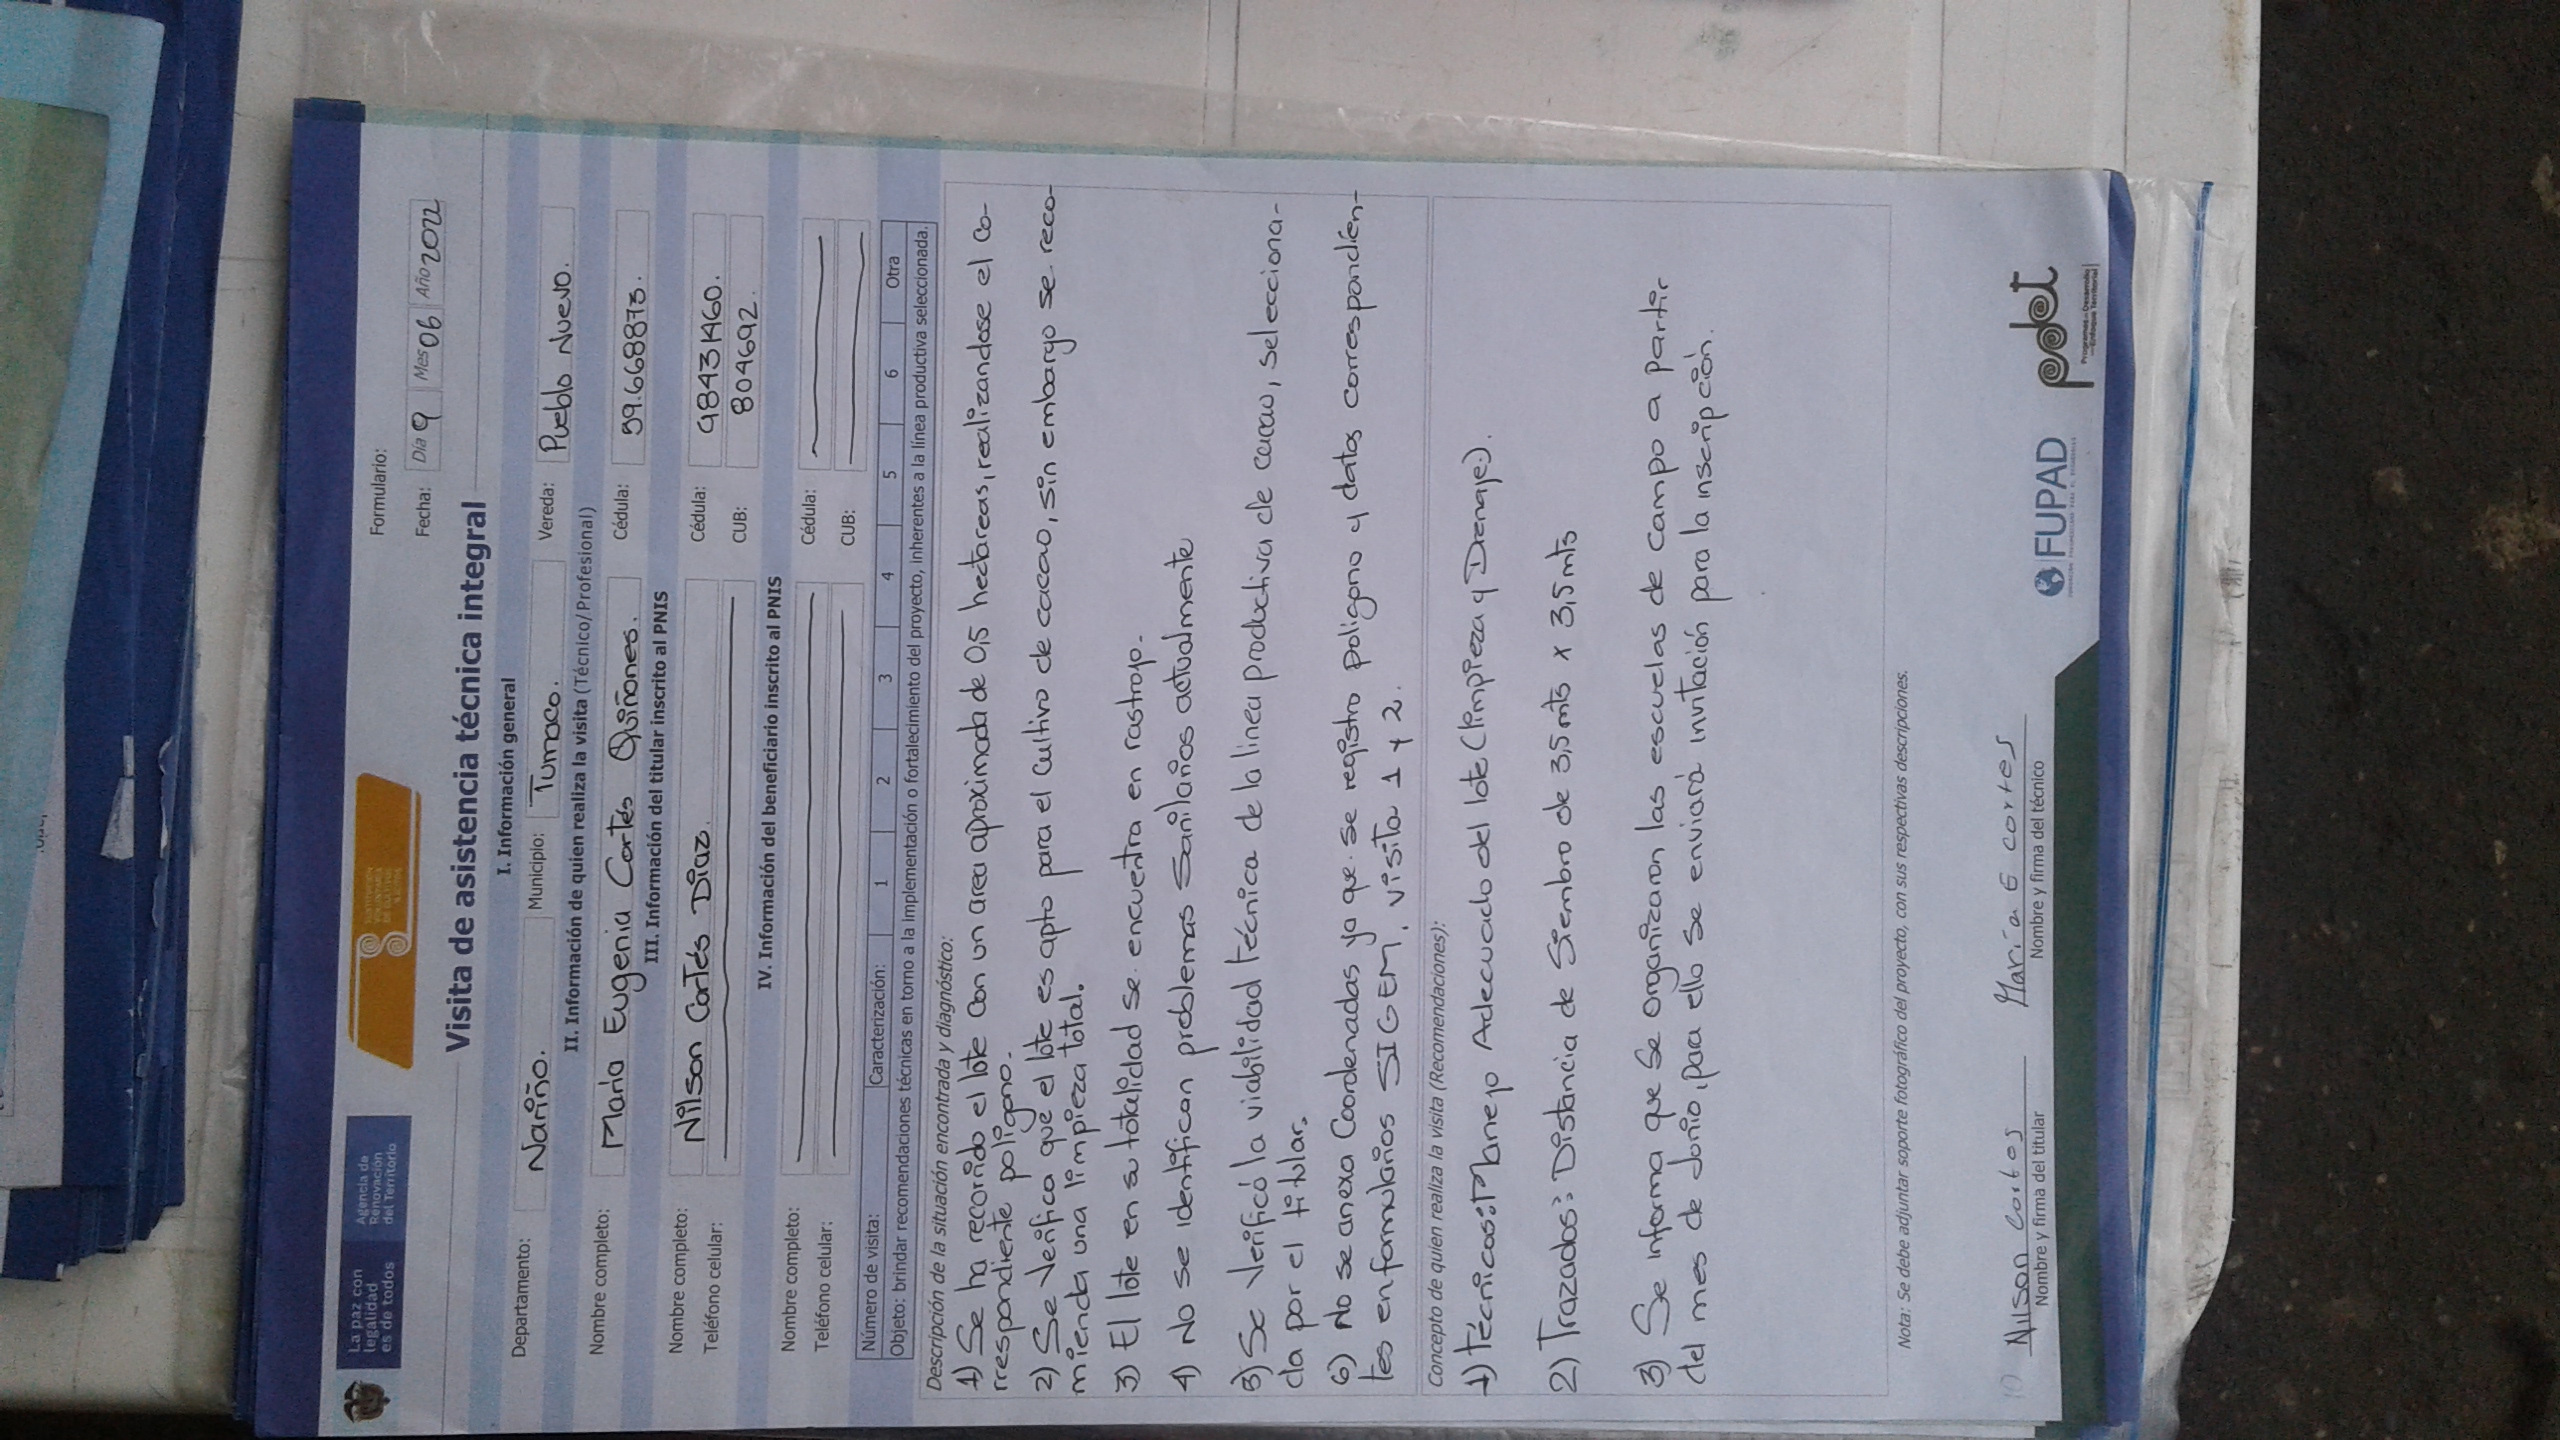 La paz con
legalidad
es de todos
Agencia de
Renovación
del Territorio
Formulario:
Fecha: Día 9 Mes 06 Año 2022
Visita de asistencia técnica integral
I. Información general
Departamento: Nariño. Municipio: Tumaco. Vereda: Pueblo Nuevo.
II. Información de quien realiza la visita (Técnico/Profesional)
Nombre completo: Maria Eugenia Cortés Quiñones. Cédula: 59.668873.
III. Información del titular inscrito al PNIS
Nombre completo: Nilson Cortés Diaz. Cédula: 98431460.
Teléfono celular: CUB: 804692.
IV. Información del beneficiario inscrito al PNIS
Nombre completo: Cédula:
Teléfono celular: CUB:
Número de visita: Caracterización: 1 2 3 4 5 6 Otra
Objeto: brindar recomendaciones técnicas en torno a la implementación o fortalecimiento del proyecto, inherentes a la línea productiva seleccionada.
Descripción de la situación encontrada y diagnóstico:
1) Se ha recorrido el lote con un area aproximada de 0,5 hectareas, realizandose el co-
rrespondiente poligono.
2) Se verifica que el lote es apto para el cultivo de cacao, sin embargo se reco-
mienda una limpieza total.
3) El lote en su totalidad se encuentra en rastrojo.
4) No se identifican problemas Sanitarios actualmente
5) Se verificó la viabilidad técnica de la linea productiva de cacao, selecciona-
da por el titular.
6) No se anexa Coordenadas ya que se registro poligono y datos correspondien-
tes en formularios SIGEM, visita 1 y 2.
Concepto de quien realiza la visita (Recomendaciones):
1) Técnicos: Manejo Adecuado del lote (limpieza y Drenaje).
2) Trazados: Distancia de Siembra de 3,5 mts x 3,5 mts
3) Se informa que se organizaron las escuelas de campo a partir
del mes de Junio, para ello se enviará invitación para la inscripción.
Nota: Se debe adjuntar soporte fotográfico del proyecto, con sus respectivas descripciones.
Nilson Cortes
Nombre y firma del titular
María E cortes
Nombre y firma del técnico
FUPAD
pdet
Programas de Desarrollo
con Enfoque Territorial